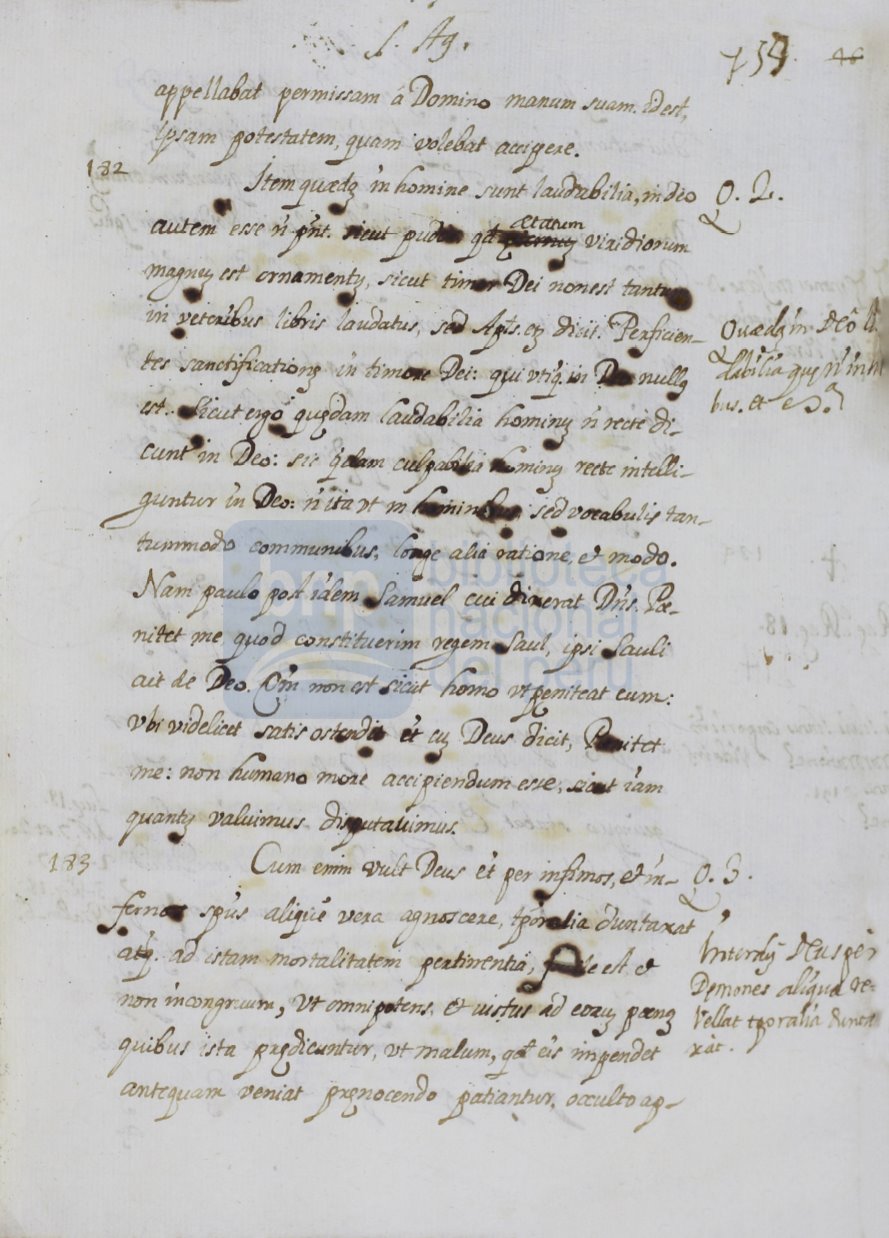 S. Ag.
159. 46
appellabat permissam á Domino manum suam. idest,
ipsam potestatem, quam volebat accipere.
182
Item quædã in homine sunt laudabilia, in deo
Q. 2.
autem esse ñ pñt. sicut pudor qđ ætatum viridiorum
magnuȝ est ornamentȝ, sicut timor Dei non est tantum
in veteribus libris laudatus, sed Apts. etȝ dicit. Perficien-
tes sanctificationȝ in timore Dei: qui vtiq̃ in Deo nullȝ
est. Sicut ergo quędam laudabilia hominȝ ñ recte di-
cunt in Deo: sic q̃dam culpabilia hominȝ recte intelli-
guntur in Deo: ñ ita vt in hominibus, sed vocabulis tan-
tummodo communibus, longe alia ratione, et modo.
Nam paulo post idem Samuel cui dixerat Dñs. Pæ-
nitet me, quod constituerim regem Saul, ipsi Sauli
ait de Deo. Qm̃ non est sicut homo vt peniteat eum:
vbi videlicet satis ostendit et cȝ Deus dicit, Penitet
me: non humano more accipiendum esse, sicut iam
quantȝ valuimus disputauimus.
Quædȝ in
bus. et
183
Cum enim vult Deus et per infimos, et in-
Q. 3.
fernos spũs aliquẽ vera agnoscere, tp̃oralia duntaxat
atq̃. ad istam mortalitatem pertinentia, facile est, et
non incongruum, vt omnipotens, et iustus ad eorȝ pœnȝ
quibus ista prędicuntur, vt malum, qđ eis inpendet
antequam veniat pręnocendo patiantur, occulto ap-
Interdȝ Deus per
Dęmones aliqua re-
vellat tporalia dunta
xat.
biblioteca
nacional
del perú